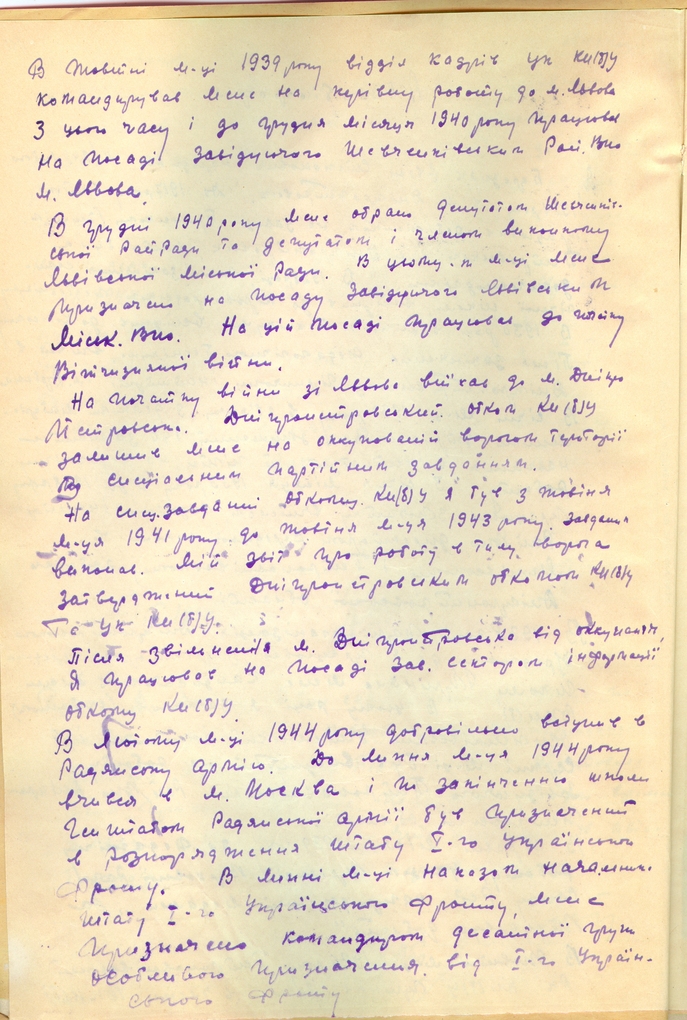 В жовтні м-ці 1939 року відділ кадрів ЦК КП(б)У
командирував мене на керівну роботу до м. Львова
З цього часу і до грудня місяця 1940 року працював
на посаді завідуючого Шевченківським Рай. Вно
м. Львова.
В грудні 1940 року мене обрано депутатом Шевченків-
ської Райради та депутатом і членом виконкому
Львівської міської Ради. В цьому-ж м-ці мене
призначено на посаду завідуючого Львівським
Міськ. Вно. На цій посаді працював до
Вітчизняної війни.
На початку війни зі Львова виїхав до м. Дніпро
Петровська. Дніпропетровський обком КП(б)У
залишив мене на оккупованій ворогом території
із спеціальним партійним завданням.
На спец. завданні обкому КП(б)У я був з жовтня
м-ця 1941 року до жовтня м-ця 1943 року. Завдання
виконав. Мій звіт про роботу в тилу ворога
затверджений Дніпропетровським обкомом КП(б)У
Та ЦК КП(б)У.
Після звільнення м. Дніпропетровська від оккупантів,
я працював на посаді зав. сектором інформації
обкому КП(б)У
В лютому м-ці 1944 року добровільно вступив в
Радянську армію. До липня м-ця 1944 року
вчився в м. Москва і по закінченню школи
Генштабом Радянської армії був призначений
в розпорядження штабу І-го Українського
фронту. В липні м-ці наказом начальника
штабу І-го Українського фронту, мене
призначено командиром десантної групи
особливого призначення від І-го Україн-
ського фронту